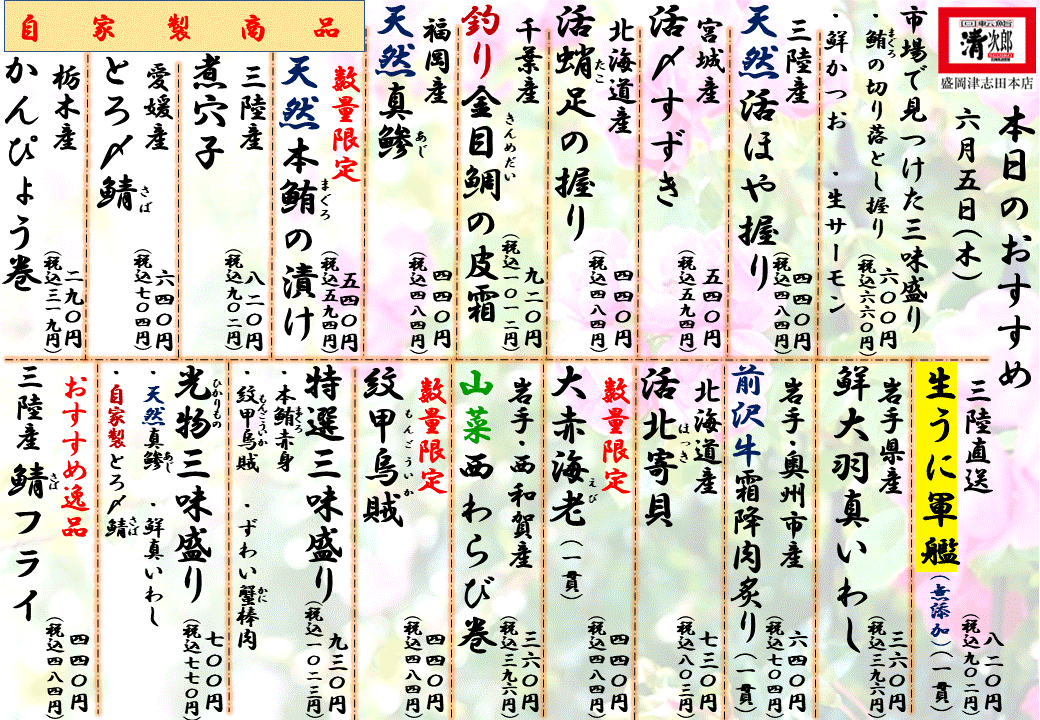 回転鮨
清次郎
盛岡津志田本店
本日のおすすめ
六月五日(木)
市場で見つけた三味盛り
・鮪の切り落とし握り
まぐろ
・鮮かつお ・生サーモン
六〇〇円
(税込六六〇円)
三陸産
天然活ほや握り
四四〇円
(税込四八四円)
宮城産
活〆すずき
五四〇円
(税込五九四円)
北海道産
活蛸足の握り
たこ
四四〇円
(税込四八四円)
千葉産
釣り金目鯛の皮霜
きんめだい
九二〇円
(税込一〇一二円)
福岡産
天然真鯵
あじ
四四〇円
(税込四八四円)
自家製商品
数量限定
天然本鮪の漬け
まぐろ
五四〇円
(税込五九四円)
三陸産
煮穴子
八二〇円
(税込九〇二円)
愛媛産
とろ〆鯖
さば
六四〇円
(税込七〇四円)
栃木産
かんぴょう巻
二九〇円
(税込三一九円)
三陸直送
生うに軍艦(無添加)(一貫)
八二〇円
(税込九〇二円)
岩手県産
鮮大羽真いわし
三六〇円
(税込三九六円)
岩手・奥州市産
前沢牛霜降肉炙り(一貫)
六四〇円
(税込七〇四円)
北海道産
活北寄貝
ほっき
七三〇円
(税込八〇三円)
数量限定
大赤海老(一貫)
えび
四四〇円
(税込四八四円)
岩手・西和賀産
山菜西わらび巻
三六〇円
(税込三九六円)
数量限定
紋甲烏賊
もんごういか
四四〇円
(税込四八四円)
特選三味盛り
・本鮪赤身 ・ずわい蟹棒肉
まぐろ
かに
・紋甲烏賊
もんごういか
九三〇円
(税込一〇二三円)
光物三味盛り
ひかりもの
・天然真鯵 ・鮮真いわし
あじ
・自家製とろ〆鯖
さば
七〇〇円
(税込七七〇円)
おすすめ逸品
三陸産 鯖フライ
さば
四四〇円
(税込四八四円)